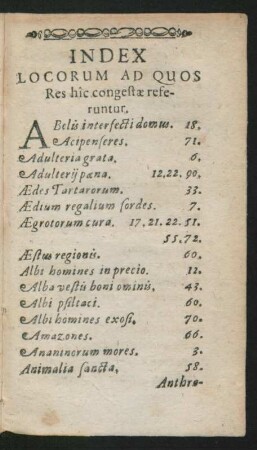 INDEX
LOCORUM AD QUOS
Res hîc congestæ refe-
runtur.
ABelis interfecti domus. 18.
Acipenseres. 71.
Adulteria grata. 6.
Adulterij pœna. 12.22.90.
Ædes Tartarorum. 33.
Ædium regalium sordes. 7.
Ægrotorum cura. 17.21.22.51.
55.72.
Æstus regionis. 60.
Albi homines in precio. 12.
Alba vestis boni ominis. 43.
Albi psittaci. 60.
Albi homines exosi. 70.
Amazones. 66.
Ananinorum mores. 3.
Animalia sancta. 58.
Anthro-